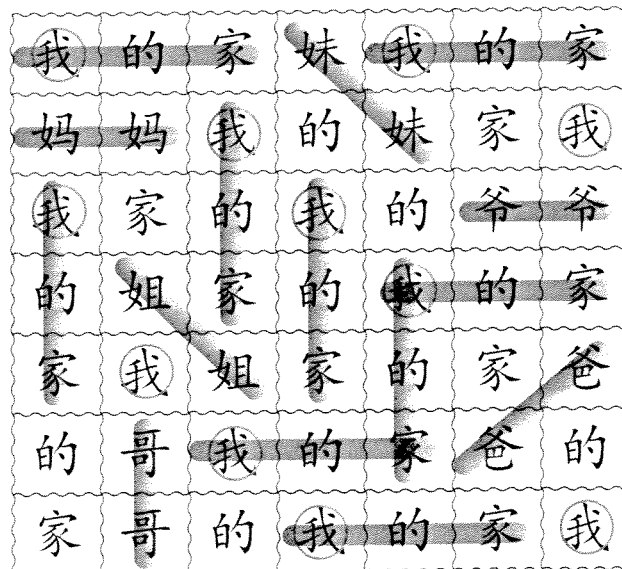 我的家妹我的家
妈妈我的妹家我
我家的我的爷爷
的姐家的我的家
家我姐家的家爸
的哥我的家爸的
家哥的我的家我